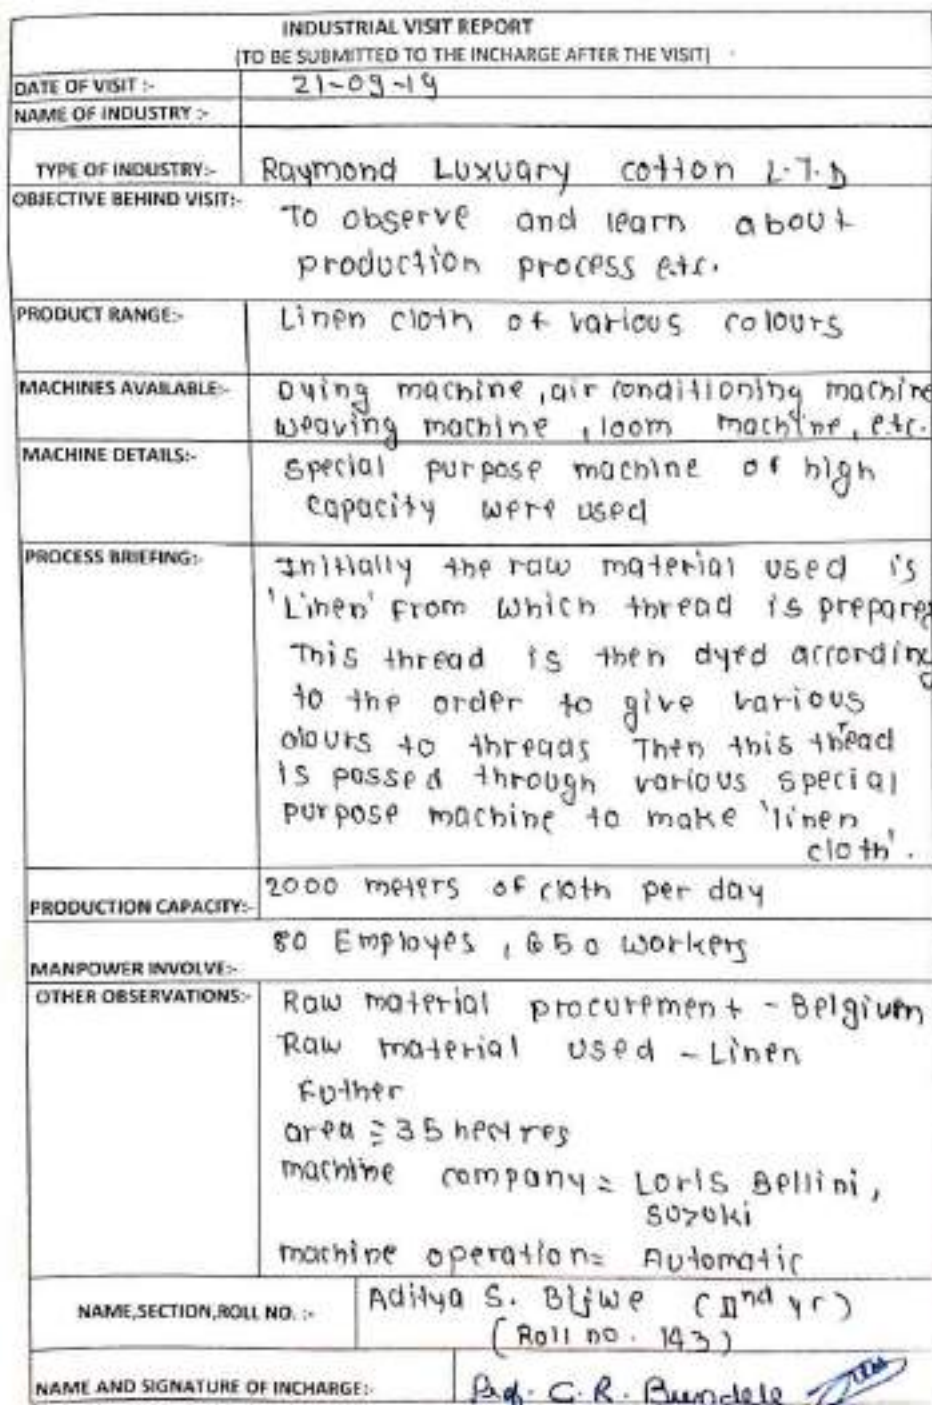 INDUSTRIAL VISIT REPORT
(TO BE SUBMITTED TO THE INCHARGE AFTER THE VISIT)
DATE OF VISIT :- 21-09-19
NAME OF INDUSTRY :-
TYPE OF INDUSTRY:- Raymond Luxuary cotton L.T.D
OBJECTIVE BEHIND VISIT:- To observe and learn about
production process etc.
PRODUCT RANGE:- Linen cloth of various colours
MACHINES AVAILABLE:- Dying machine, air conditioning machine
weaving machine, loom machine, etc.
MACHINE DETAILS:- special purpose machine of high
capacity were used
PROCESS BRIEFING:- Initially the raw material used is
'Linen' from which thread is prepared
This thread is then dyed according
to the order to give various
olours to threads Then this thread
is passed through various special
purpose machine to make 'linen
cloth'.
PRODUCTION CAPACITY:- 2000 meters of cloth per day
MANPOWER INVOLVE:- 80 Employes, 650 workers
OTHER OBSERVATIONS:- Raw material procurement - Belgium
Raw material used - Linen
Futher
area = 35 hectres
machine company = Loris Bellini,
suzuki
machine operation= Automatic
NAME,SECTION,ROLL NO. :- Aditya S. Bijwe (IInd yr)
(Roll no. 143)
NAME AND SIGNATURE OF INCHARGE:- Prof. C. R. Bundele